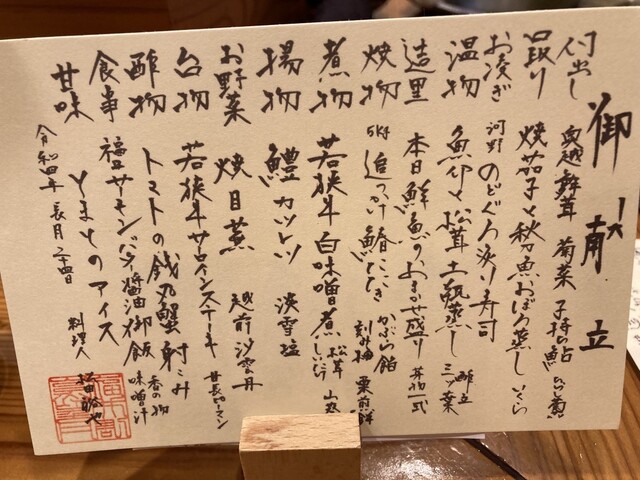 御献立
付出し 奥越舞茸 菊菜 子持ち鮎
口取り 焼茄子と秋刀魚おぼろ蒸し いくら
お凌ぎ 河野 のどぐろ炙り寿司
温物 魚介と松茸土瓶蒸し 酢立 三ツ葉
造里 本日鮮魚のおまかせ盛り 妻物一式
焼物 追つけ鰆たたき かぶら餡 刻み梅 栗煎餅
煮物 若狭牛白味噌煮 松茸
揚物 鱧カツレツ 淡雪塩
お野菜 焼目蒸 越前沙雪丹
台物 若狭牛サロインステーキ 甘長ピーマン
酢物 トマトの銭丸蟹射こみ
食事 福いサーモンバター醤油御飯 香の物 味噌汁
甘味 とまとのアイス
令和四年 長月 二十四日
料理人